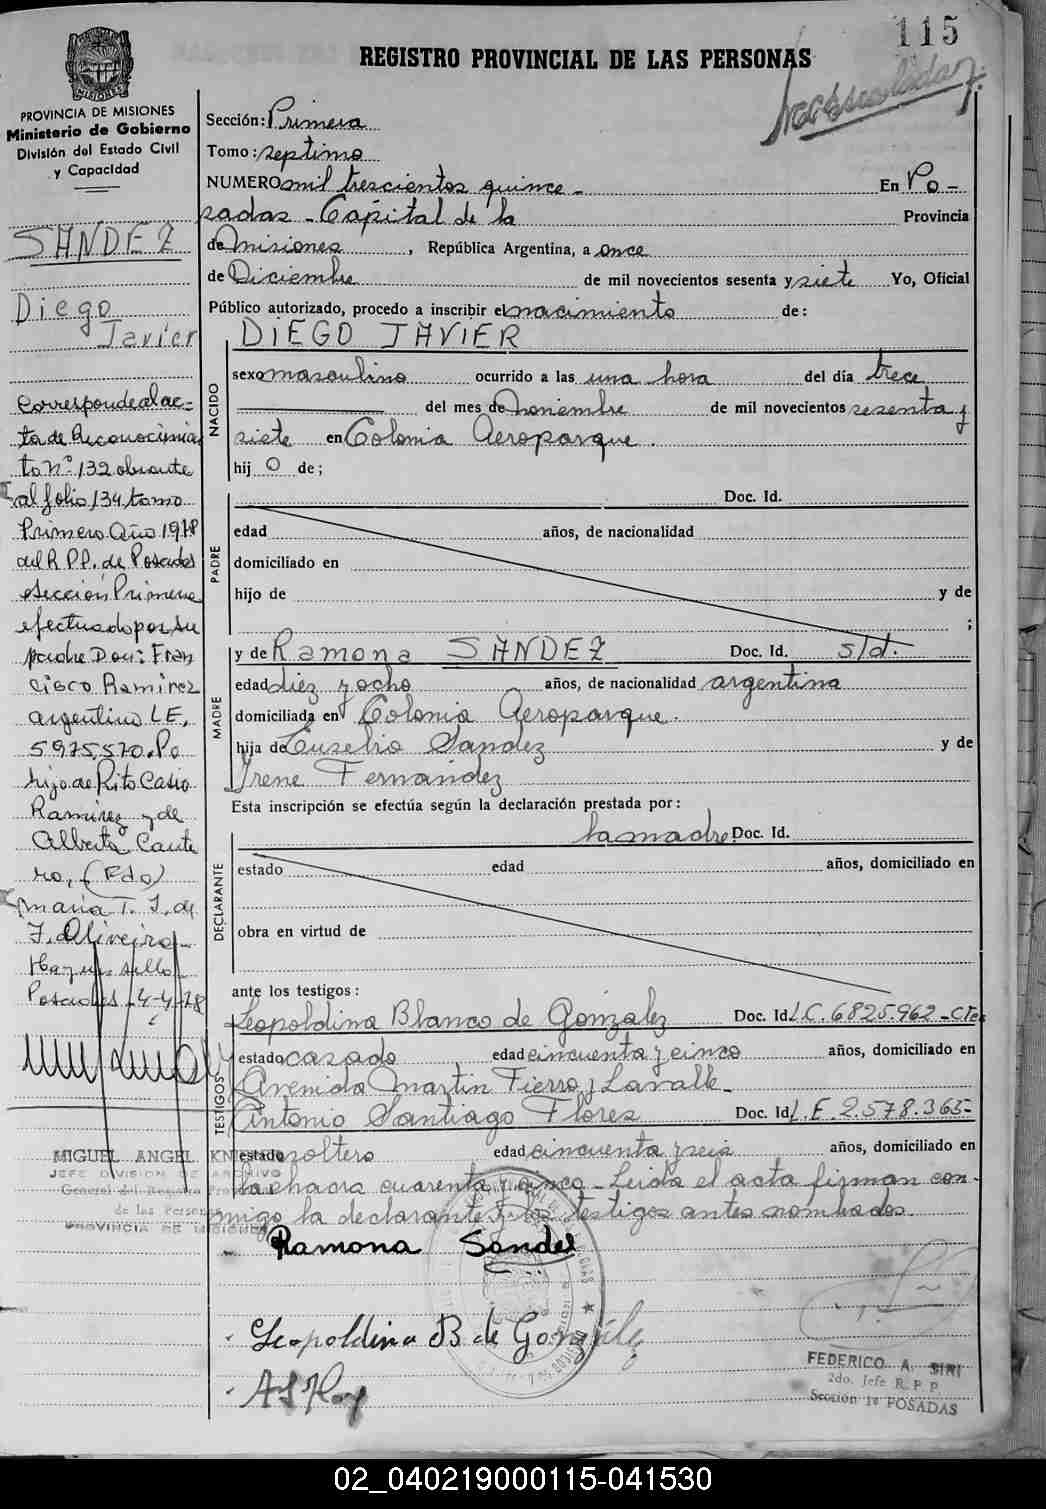 115
REGISTRO PROVINCIAL DE LAS PERSONAS
MISIONES
PROVINCIA DE MISIONES
Ministerio de Gobierno
División del Estado Civil
y Capacidad
SANDEZ
Diego
Javier
Corresponde al ac-
ta de Reconocimien
to nº 132 obrante
al folio 134 tomo
Primero Año 1978
del R.P.P. de Posadas
sección Primera
efectuado por su
padre Don: Fran
cisco Ramirez
argentino L.E.
5975.570. Po
hijo de Rito Casio
Ramirez y de
Alberta Caute
ro, (Fdo)
maria T. J. de
F. Oliveira
Hay un sello
Posadas 4-4-78
MIGUEL ANGEL
JEFE DIVISION DE ARCHIVO
General del Registro Provincial
de las Personas
PROVINCIA DE MISIONES
Sección: Primera
Tomo: septimo
NUMERO mil trescientos quince - En Po-
sadas - Capital de la Provincia
de Misiones, República Argentina, a once
de Diciembre de mil novecientos sesenta y siete Yo, Oficial
Público autorizado, procedo a inscribir el nacimiento de:
DIEGO JAVIER
NACIDO
sexo masculino ocurrido a las una hora del día trece
del mes de noviembre de mil novecientos sesenta y
siete en Colonia Aeroparque.
hij o de;
PADRE
Doc. Id.
edad años, de nacionalidad
domiciliado en
hijo de y de
;
MADRE
y de Ramona SANDEZ Doc. Id. s/d.
edad diez y ocho años, de nacionalidad argentina
domiciliada en Colonia Aeroparque.
hija de Eusebio Sandez y de
Irene Fernandez
Esta inscripción se efectúa según la declaración prestada por:
la madre Doc. Id.
DECLARANTE
estado edad años, domiciliado en
obra en virtud de
ante los testigos:
TESTIGOS
Leopoldina Blanco de Gonzalez Doc. Id L.C. 6825.962-Ctes
estado casado edad cincuenta y cinco años, domiciliado en
Avenida Martin Fierro y Lavalle-
Antonio Santiago Flores Doc. Id L.E. 2.578.365-
estado soltero edad cincuenta y seis años, domiciliado en
la chacra cuarenta y cinco - Leida el acta firman con-
migo la declarante y los testigos antes nombrados.
Ramona Sandez
Leopoldina B de González
FEDERICO A. SIRI
2do. Jefe R.P.P.
Sección 1ª POSADAS
02_040219000115-041530